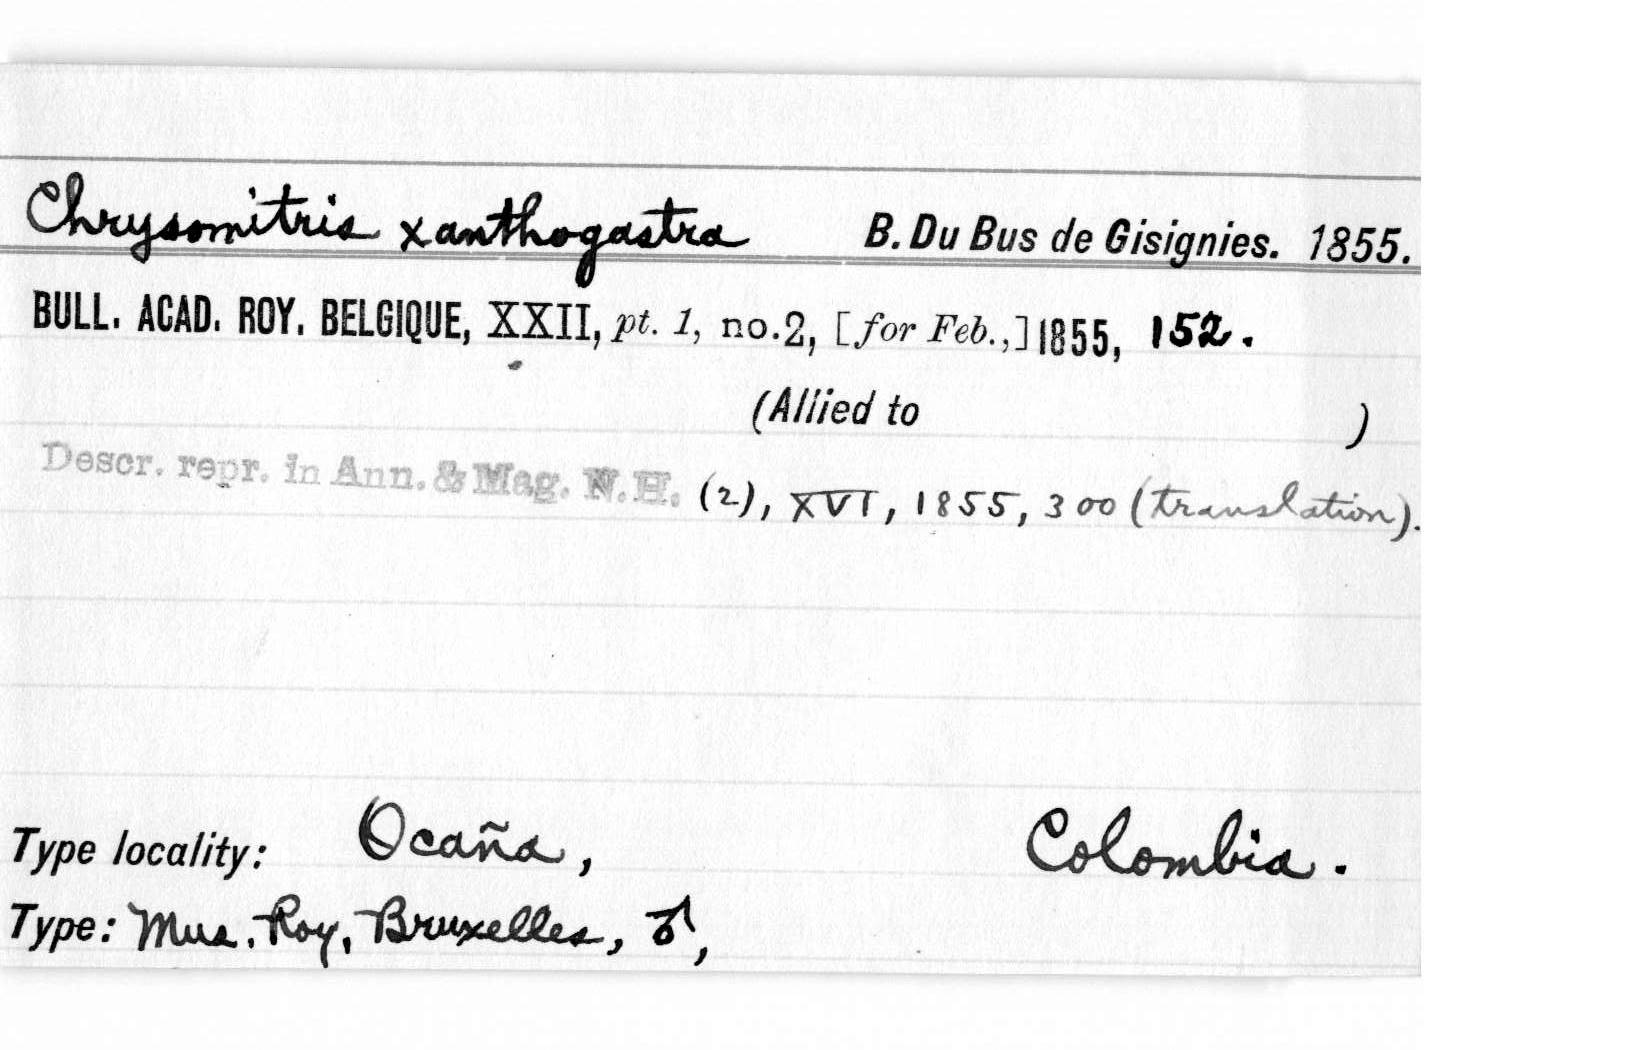 Chrysomitris xanthogastra B. Du Bus de Gisignies. 1855.
BULL. ACAD. ROY. BELGIQUE, XXII, pt. 1, no.2, [for Feb.,] 1855, 152.
(Allied to )
Descr. repr. in Ann. & Mag. N.H. (2), XVI, 1855, 300 (translation).
Type locality: Ocaña, Colombia.
Type: Mus. Roy. Bruxelles, ♂,